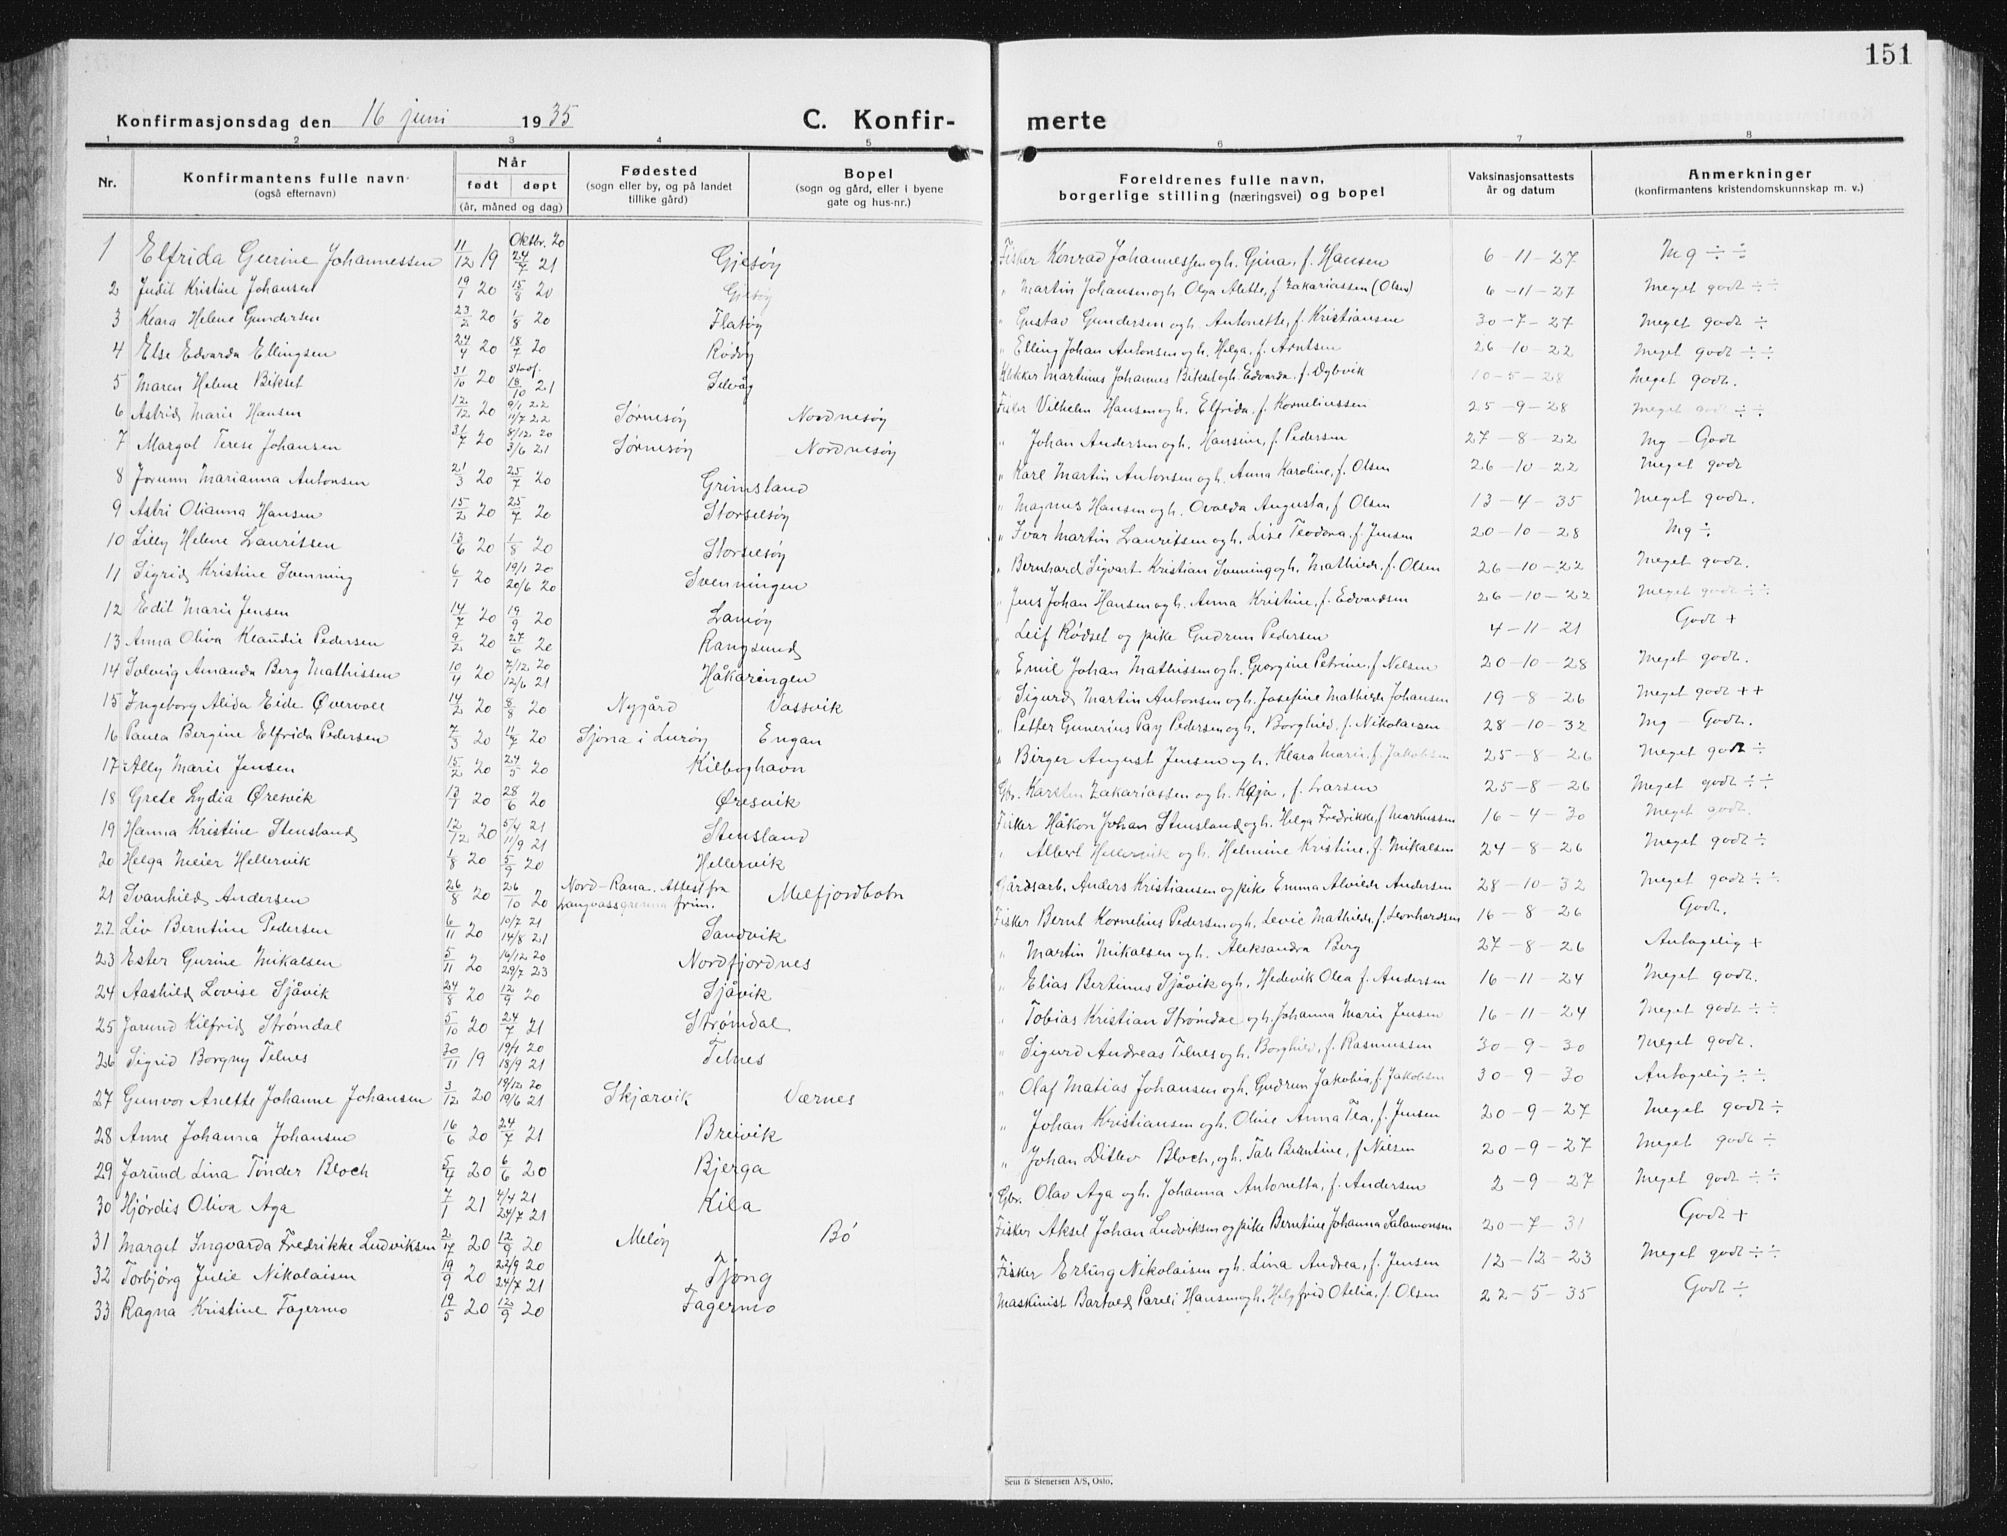 151
Konfirmasjonsdag den 16 juni 1935 C. Konfir- merte
1 2 3 4 5 6 7 8
Nr. Konfirmantens fulle navn (også efternavn) Når født døpt (år, måned og dag) Fødested (sogn eller by, og på landet tillike gård) Bopel (sogn og gård, eller i byene gate og hus-nr.) Foreldrenes fulle navn, borgerlige stilling (næringsvei) og bopel Vaksinasjonsattests år og datum Anmerkninger (konfirmantens kristendomskunnskap m. v.)
1 Elfrida Gurine Johannessen 11/12 19 Oktbr. 20 24/7 21 Gjesøy Fisker Konrad Johannessen og h. Gina, f. Hansen 6-11-27 Mg ÷ ÷
2 Judit Kristine Johansen 19/1 20 15/8 20 Gjesøy " Martin Johansen og h. Olga Alette, f. Zakariassen (Olsen) 6-11-27 Meget godt ÷ ÷
3 Klara Helene Gundersen 23/2 20 1/8 20 Flatøy " Gustav Gundersen og h. Antonette, f. Kristiansen 30-7-27 Meget godt ÷
4 Else Edvarda Ellingsen 24/4 20 18/7 20 Rødøy " Elling Johan Antonsen og h. Helga, f. Arntsen 26-10-22 Meget godt ÷ ÷
5 Maren Helene Bikset 31/10 20 18/10 21 Selvåg Klokker Martinus Johannes Bikset og h. Edvarda, f. Dybvik 10-5-28 Meget godt.
6 Astrid Marie Hansen 12/12 20 9/1 22 11/7 22 Sørnesøy Nordnesøy Fisker Vilhelm Hansen og h. Elfrida, f. Korneliussen 25-9-28 Meget godt ÷ ÷
7 Margot Terese Johansen 31/7 20 8/12 20 3/6 21 Sørnesøy Nordnesøy " Johan Andersen og h. Hansine, f. Pedersen 27-8-22 Mg - Godt
8 Jorunn Marianna Antonsen 21/3 20 25/7 20 Grimsland " Karl Martin Antonsen og h. Anna Karoline, f. Olsen 26-10-22 Meget godt
9 Astri Olianna Hansen 15/2 20 25/7 20 Storselsøy " Magnus Hansen og h. Ovalda Augusta, f Olsen 13-4-35 Meget godt.
10 Lilly Helene Lauritsen 13/6 20 1/8 20 Storselsøy " Ivar Martin Lauritsen og h. Lise Teodora, f. Jensen 20-10-28 Mg ÷
11 Sigrid Kristine Svenning 6/1 20 19/1 20 20/6 20 Svenningen " Bernhard Sigvart Kristian Svenning og h. Mathilde, f. Olsen 26-10-22 Meget godt.
12 Edit Marie Jensen 14/7 20 19/9 20 Lamøy " Jens Johan Hansen og h. Anna Kristine, f. Edvardsen 26-10-22 Meget godt ÷ ÷
13 Anna Oliva Klaudie Pedersen 9/2 20 27/6 20 Rangsund " Leif Rødset og pike Gudrun Pedersen 4-11-21 Godt +
14 Solveig Amanda Berg Mathissen 10/4 20 7/12 20 12/6 21 Håkaringen " Emil Johan Mathissen og h. Georgine Petrine, f. Nilsen 20-10-28 Meget godt.
15 Ingeborg Alida Eide Øvervoll 14/2 20 8/8 20 Nygård Vassvik " Sigurd Martin Antonsen og h. Josefine Mathilde Johansen 19-8-26 Meget godt + +
16 Paula Bergine Elfrida Pedersen 7/3 20 11/7 20 Sjona i Lurøy Engan " Petter Gunerius Pay Pedersen og h. Borghild, f. Nikolaisen 28-10-32 Mg - Godt.
17 Ally Marie Jensen 15/2 20 24/5 20 Kilboghavn " Birger August Jensen og h. Klara Marie, f. Jakobsen 25-8-26 Meget godt ÷
18 Grete Lydia Øresvik 13/1 20 28/6 20 Øresvik Gbr. Karsten Zakariassen og h. Kaja, f. Larsen 25-8-26 Meget godt ÷ ÷
19 Hanna Kristine Stensland 12/12 20 5/4 21 11/9 21 Stensland Fisker Håkon Johan Stensland og h. Helga Fredrikke, f Markussen 16-4-30 Meget godt.
20 Helga Meier Hellervik 1/8 20 5/9 20 Hellervik " Albert Hellervik og h. Helmine Kristine, f. Mikalsen 24-8-26 Meget godt ÷
21 Svanhild Andersen 26/8 20 26/10 20 Nord-Rana. Attest fra Langvassgrenna frim. Melfjordbotn Gårdsarb. Anders Kristiansen og pike Emma Alvilde Andersen 28-10-32 Meget godt ÷ ÷
22 Liv Berntine Pedersen 6/11 20 10/7 21 14/8 21 Sandvik Fisker Bernt Kornelius Pedersen og h. Levie Mathilde, f. Leonhardsen 16-8-26 Godt.
23 Ester Gurine Mikalsen 5/11 20 16/12 20 29/7 23 Nordfjordnes " Martin Mikalsen og h. Aleksandra Berg 27-8-26 Antagelig +
24 Aashild Lovise Sjåvik 24/8 20 12/9 20 Sjåvik " Elias Bertinus Sjåvik og h. Hedevik Olea f. Andersen 16-11-24 Meget godt.
25 Jorund Kilfrid Strømdal 5/10 20 24/7 21 Strømdal " Tobias Kristian Strømdal og h. Johanna Marie Jensen 16-11-24 Meget godt ÷
26 Sigrid Borgny Telnes 30/11 19 19/1 20 18/9 21 Telnes " Sigurd Andreas Telnes og h. Borghild, f. Rasmussen 30-9-30 Meget godt.
27 Gunvor Anette Johanne Johansen 3/12 20 19/12 20 19/6 21 Skjærvik Værnes " Olaf Matias Johansen og h. Gudrun Jakobia, f. Jakobsen 30-9-30 Antagelig ÷ ÷
28 Anne Johanna Johansen 16/6 20 24/7 21 Breivik " Johan Kristiansen og h. Oline Anna Tea, f. Jensen 20-9-27 Meget godt ÷
29 Jorund Lina Tønder Bloch 5/4 20 6/6 20 Bjerga " Johan Ditlev Bloch, og h. Tale Berntine, f Nilsen 20-9-27 Meget godt ÷
30 Hjørdis Oliva Aga 7/1 21 4/4 21 24/7 21 Kila Gbr. Olav Aga og h. Johanna Antonetta, f. Andersen 2-9-27 Meget godt ÷ ÷
31 Marget Ingvarda Fredrikke Ludviksen 2/17 20 12/9 20 Meløy Bø Fisker Aksel Johan Ludviksen og pike Berntine Johanna Salamonsen 20-7-31 Godt +
32 Torbjørg Julie Nikolaisen 19/9 20 22/9 20 24/7 21 Tjong Fisker Erling Nikolaisen og h. Lina Andrea, f. Jensen 12-12-23 Meget godt ÷ ÷
33 Ragna Kristine Fagermo 19/5 20 12/9 20 Fagermo Maskinist Bartold Pareli Hansen og h. Helgfrid Otelia, f. Olsen 22-5-35 Godt ÷
Sem & Stenersen A/S, Oslo.